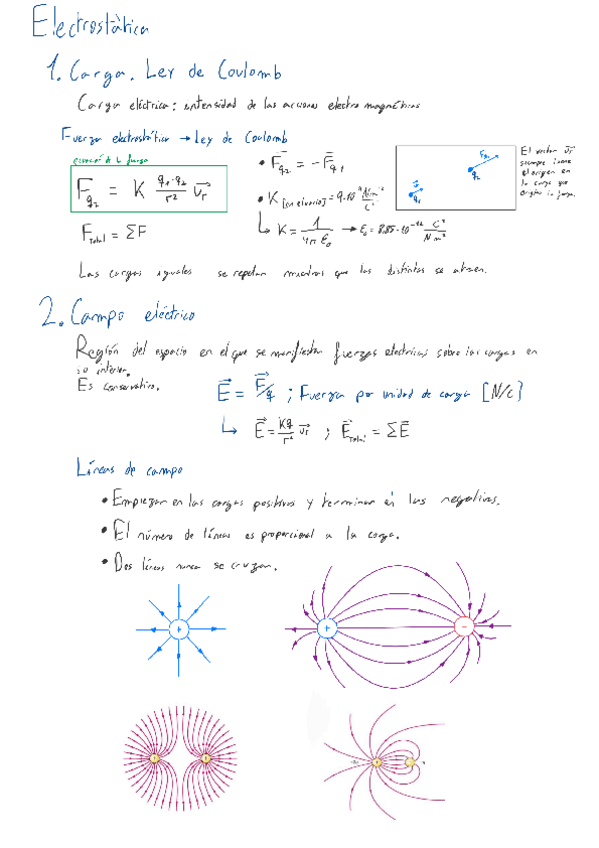 Electrostàtica
1. Carga. Ley de Coulomb
Carga eléctrica: intensidad de las acciones electromagnéticas
Fuerza electrostática → Ley de Coulomb
ecuación de la fuerza
F⃗q₂ = K q₁·q₂/r² u⃗r
• F⃗q₂ = -F⃗q₁
• K [en el vacío] = 9·10⁹ N·m²/C²
↳ K = 1/4π ε₀ → ε₀ = 8.85·10⁻¹² C²/N m²
F Total = ΣF
u⃗r
q₁
q₂
Fq₂
El vector u⃗r
siempre tiene
el origen en
la carga que
origina la fuerza.
Las cargas iguales se repelen mientras que las distintas se atraen.
2. Campo eléctrico
Región del espacio en el que se manifiestan fuerzas eléctricas sobre las cargas en
su interior.
Es conservativo.
E⃗ = F⃗/q ; Fuerza por unidad de carga [N/C]
↳ E⃗ = Kq/r² u⃗r ; E⃗Total = ΣE⃗
Líneas de campo
• Empiezan en las cargas positivas y terminan en las negativas.
• El número de líneas es proporcional a la carga.
• Dos líneas nunca se cruzan.
+
+ -